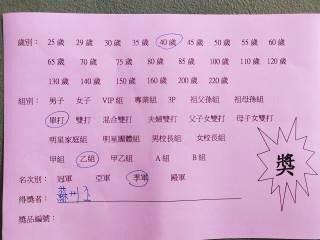 歲別： 25 歲 29 歲 30 歲 35 歲 40 歲 45 歲 50 歲 55 歲 60 歲
65 歲 70 歲 75 歲 80 歲 85 歲 100 歲 110 歲 120 歲
130 歲 140 歲 150 歲 160 歲 200 歲 220 歲
組別： 男子 女子 VIP 組 專業組 3P 祖父孫組 祖母孫組
單打 雙打 混合雙打 夫婦雙打 父子女雙打 母子女雙打
明星家庭組 明星團體組 男校長組 女校長組
甲組 乙組 甲乙組 A 組 B 組
名次別： 冠軍 亞軍 季軍 殿軍
得獎者：
獎品編號：
獎